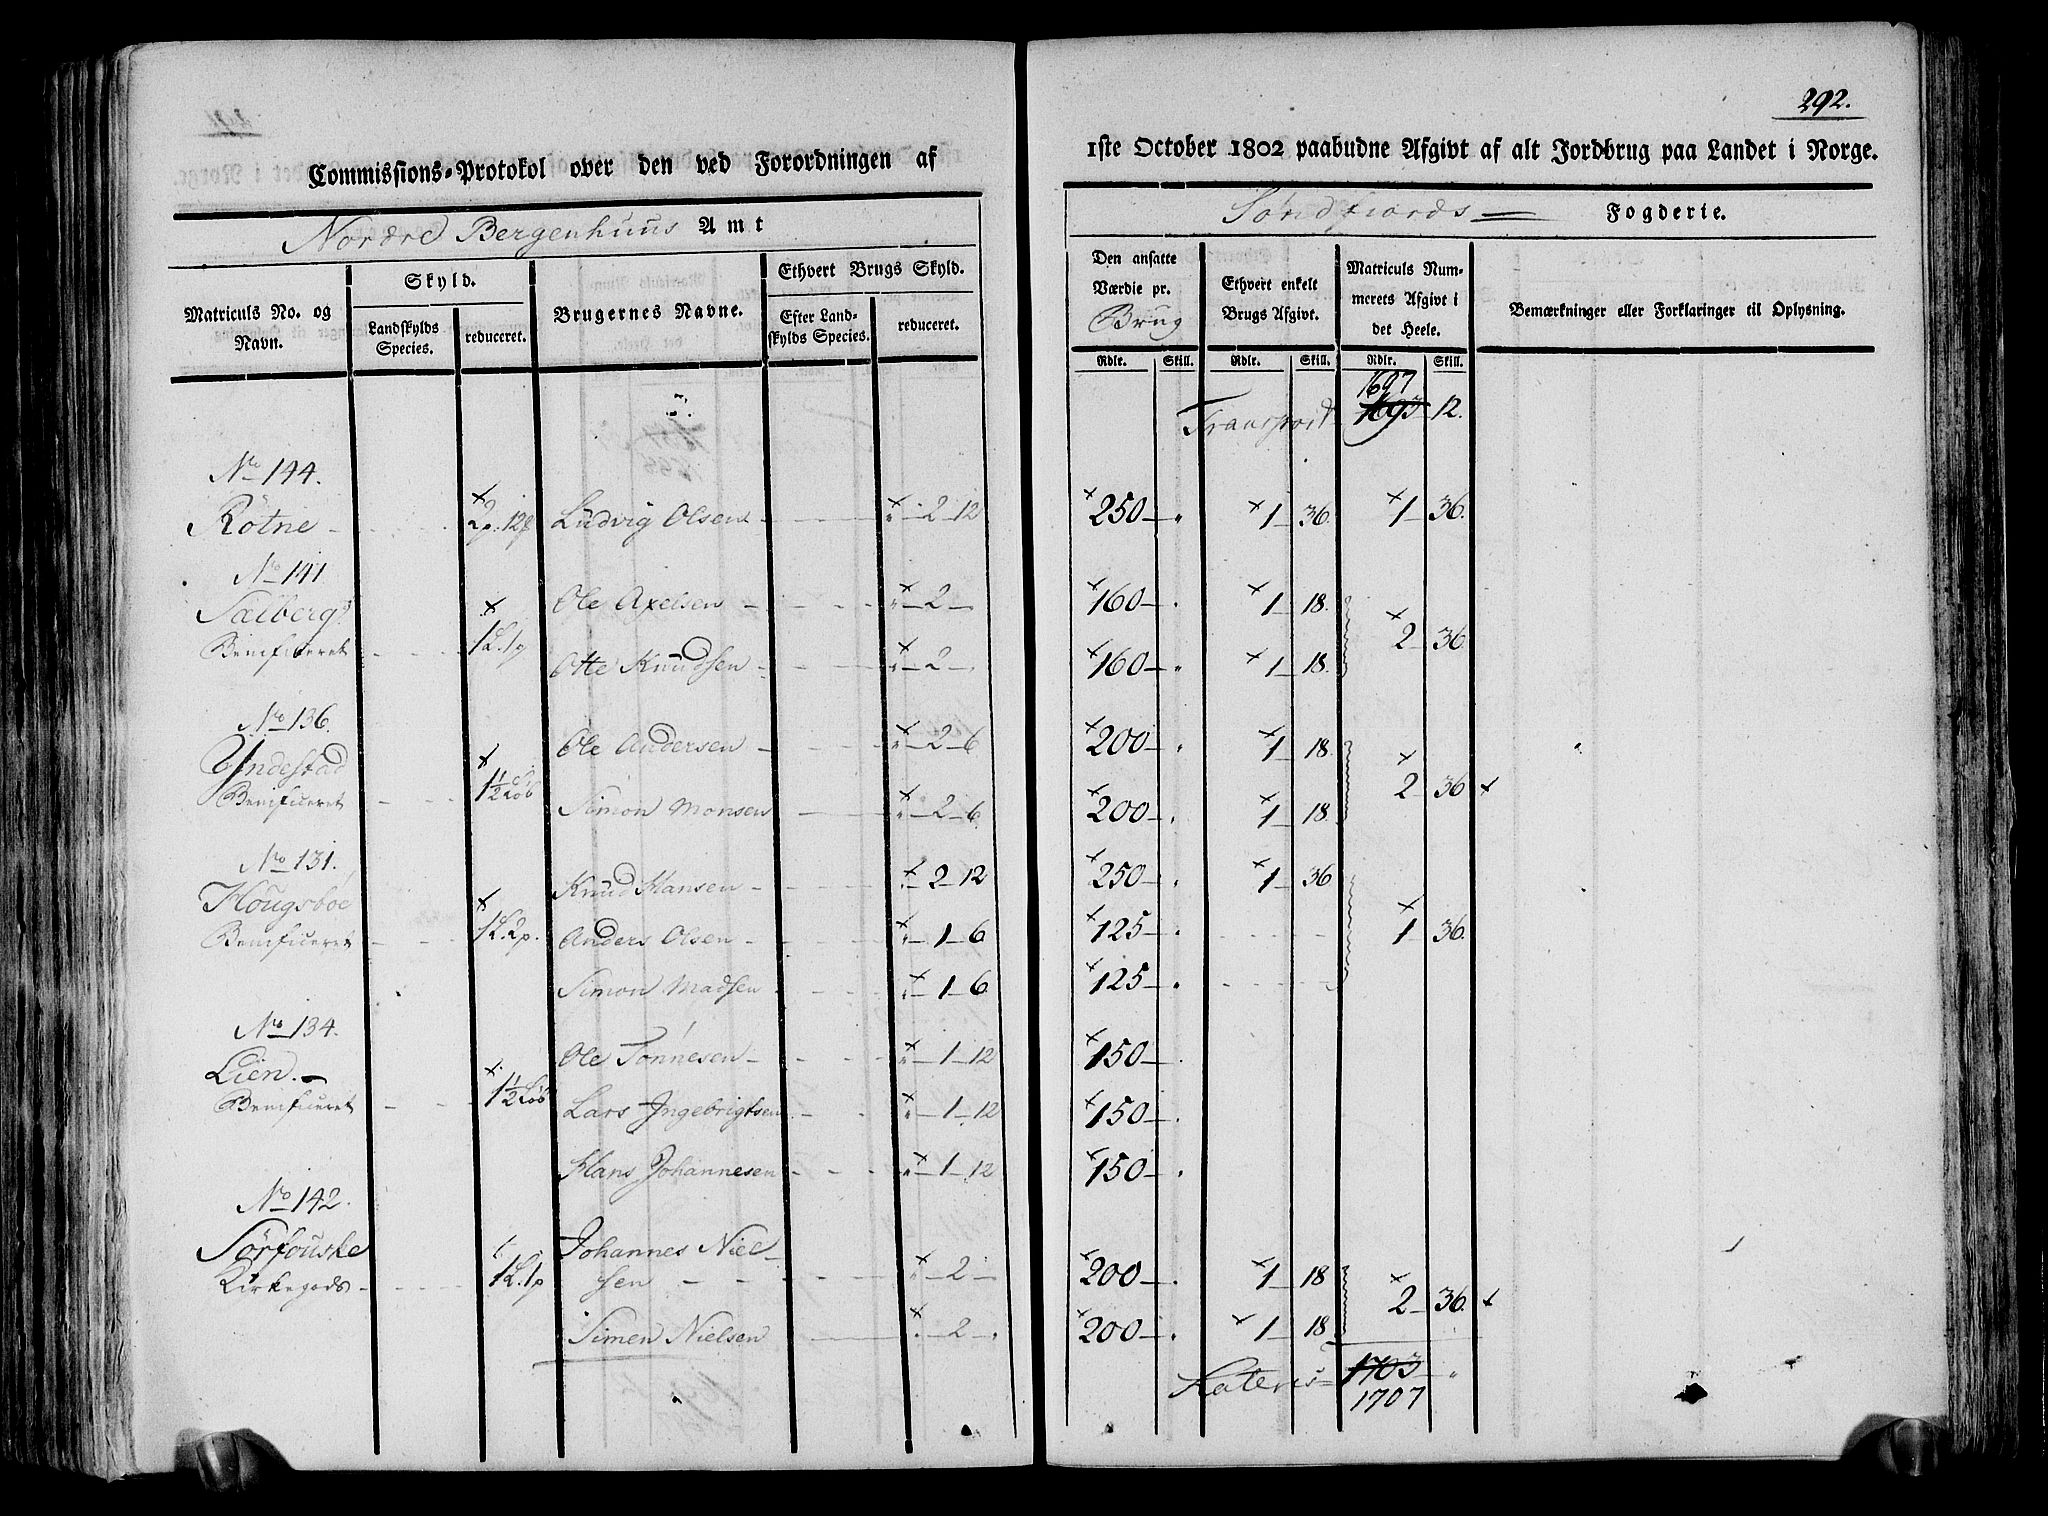 Commissions-Protokol over den ved Forordningen af
Nordre Bergenhuus Amt
Matriculs No. og Navn.
Skyld.
Landskylds Species.
reduceret.
Brugernes Navne.
Ethvert Brugs Skyld.
Efter Landskylds Species.
reduceret.
No 144.
Rötne - 2p. 12f Ludvig Olsen - " - 2 - 12
No 141
Sælberg
Beneficeret 1L. 1p
Ole Axelsen - " - 2 -
Otte Knudsen - " - 2 -
No 136.
Yndestad
Beneficeret 1½ Löb
Ole Andersen - " - 2 - 6
Simon Monsen - " - 2 - 6
No 131.
Hougsboe
Beneficeret 1L. 2p.
Knud Hansen - " - 2 - 12
Anders Olsen - " - 1 - 6
Simon Madsen - " - 1 - 6
No 134.
Lien.
Beneficeret 1½ Löb
Ole Tönnesen - " - 1 - 12
Lars Ingebrigtsen " - 1 - 12
Hans Johannesen - " - 1 - 12
No 142.
Sörfouske
Kirkegods - 1L. 1p
Johannes Niel-
sen - " - 2 -
Simen Nielsen " - 2 - "
292.
1ste October 1802 paabudne Afgivt af alt Jordbrug paa Landet i Norge.
Söndfiords Fogderie.
Den ansatte Værdie pr. Brug
Ethvert enkelt Brugs Afgivt.
Matriculs Nummerets Afgivt i det Heele.
Bemærkninger eller Forklaringer til Oplysning.
Rdlr. Skill. Rdlr. Skill. Rdlr. Skill.
1697
Transport 1693 12.
250 - " 1 36. 1 36.
160 - " 1 18.
2 36
160 - " 1 18.
200 - " 1 18.
2 36
200 - " 1 18.
250 - " 1 36
125 - " 1 36.
125 - "
150 - "
150 - "
150 - "
200 - " 1 18
2 36.
200 - " 1 18
Lateris 1703 "
1707